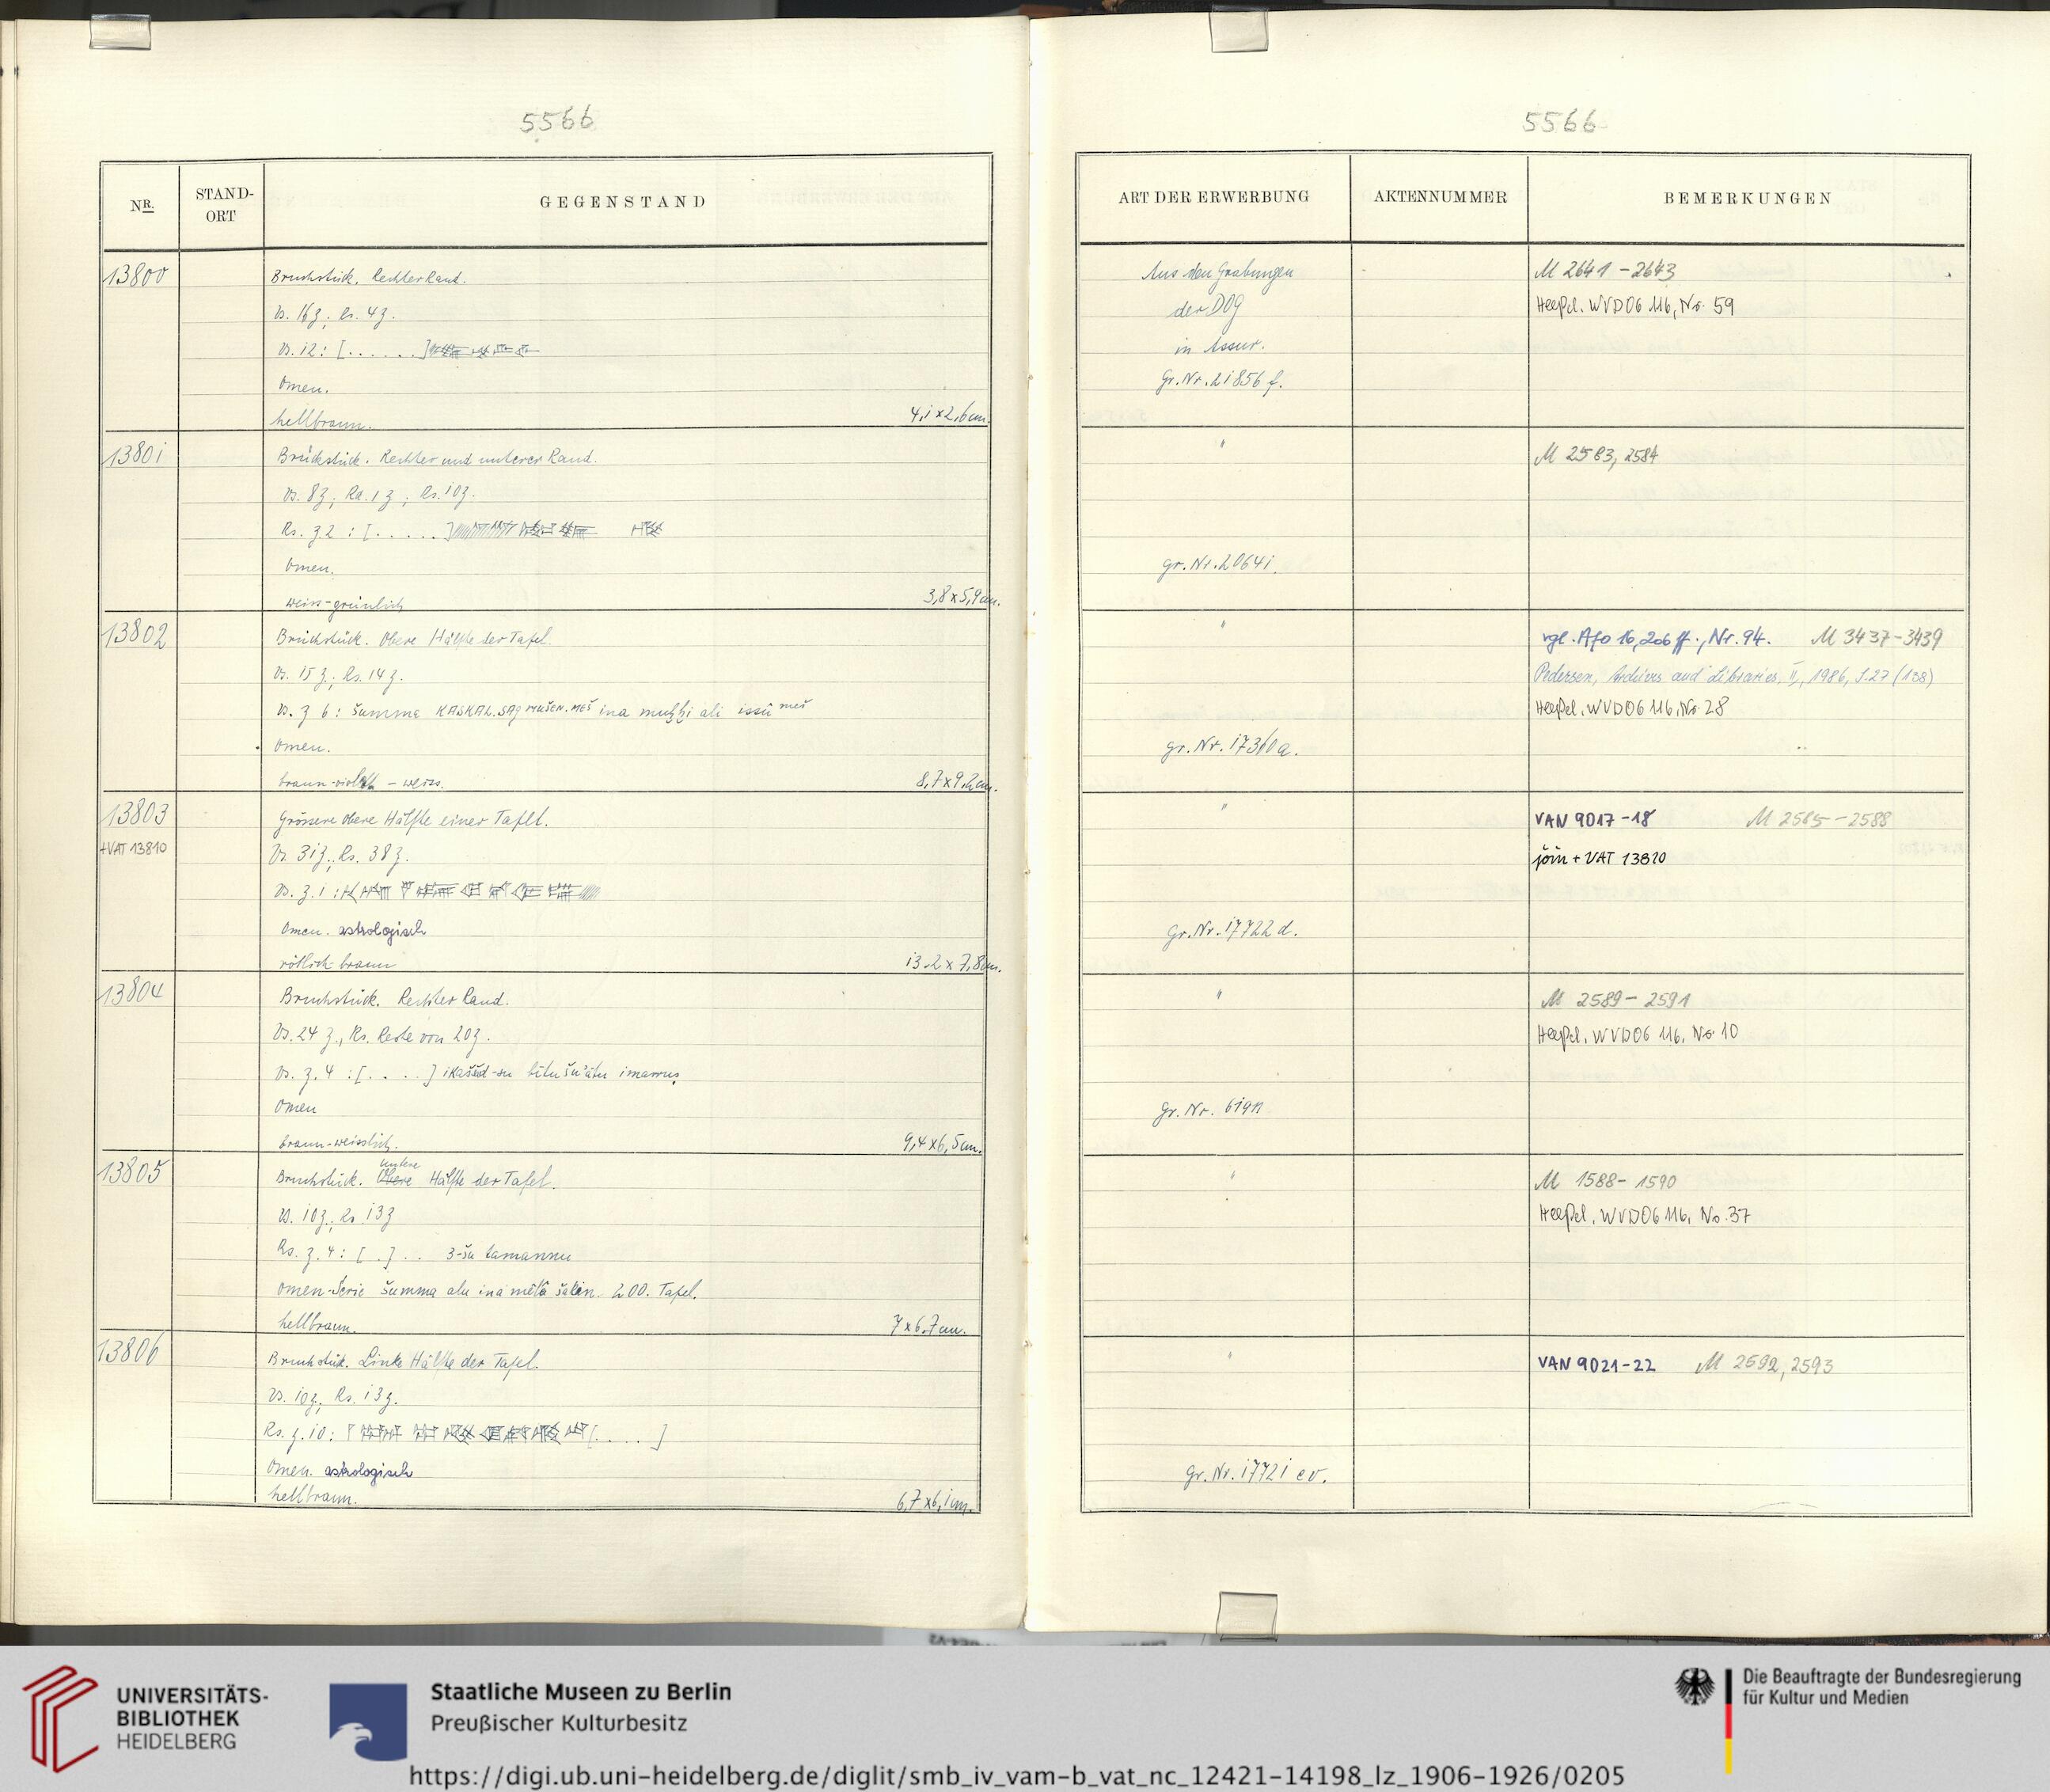 5566
NR.
STAND-
ORT
GEGENSTAND
13800
Bruchstück. Rechter Rand.
Vs. 16 Z; Rs. 4 Z.
Vs. 12: [......]
Omen.
hellbraun. 4,1 x 2,6 cm.
13801
Bruchstück. Rechter und unterer Rand.
Vs. 8 Z; Ra. 1 Z; Rs. 10 Z.
Rs. Z 2 : [.....]
Omen.
weiss-grünlich 3,8 x 5,9 cm.
13802
Bruchstück. Obere Hälfte der Tafel.
Vs. 15 Z; Rs. 14 Z.
Vs. Z 6 : šumma KASKAL.SAG mušen.meš ina muḫḫi ali issû meš
Omen.
braun-violett - weiss. 8,7 x 9,2 cm.
13803
+VAT 13810
Grössere obere Hälfte einer Tafel.
Vs. 31 Z; Rs. 38 Z.
Vs. Z. 1 :
Omen. astrologisch
rötlich-braun 13.2 x 7,8 cm.
13804
Bruchstück. Rechter Rand.
Vs. 24 Z., Rs. Reste von 20 Z.
Vs. Z. 4 : [.....] ikaššad-su bîtu šu'âtu
Omen
braun-weisslich. 9,4 x 6,5 cm.
13805
untere
Bruchstück. Obere Hälfte der Tafel.
Vs. 10 Z; Rs. 13 Z
Rs. Z. 4 : [.] .. 3-šu tamannu
Omen-Serie šumma alu ina mêlê šakin. 200. Tafel.
hellbraun. 7 x 6,7 cm.
13806
Bruchstück. Linke Hälfte der Tafel.
Vs. 10 Z; Rs. 13 Z.
Rs. Z. 10 : [.....]
Omen. astrologisch
hellbraun. 6,7 x 6,1 cm.
5566
ART DER ERWERBUNG
AKTENNUMMER
BEMERKUNGEN
Aus den Grabungen
der DOG
in Assur.
Gr. Nr. 21856 f.
M 2641 - 2643
Heeßel. WVDOG 116, Nr. 59
"
Gr. Nr. 20641.
M 2583, 2584
"
Gr. Nr. 17310 a.
vgl. AfO 16, 206 ff., Nr. 94. M 3437-3439
Pedersen, Archives and Libraries, II, 1986, S. 27 (138)
Heeßel. WVDOG 116, Nr. 28
"
Gr. Nr. 17722 d.
VAN 9017-18 M 2585-2588
join + VAT 13810
"
Gr. Nr.
M 2589 - 2591
Heeßel. WVDOG 116, Nr. 10
"
M 1588 - 1590
Heeßel. WVDOG 116, No. 37
"
Gr. Nr. 17721 cv.
VAN 9021-22 M 2592, 2593
UNIVERSITÄTS-
BIBLIOTHEK
HEIDELBERG
Staatliche Museen zu Berlin
Preußischer Kulturbesitz
Die Beauftragte der Bundesregierung
für Kultur und Medien
https://digi.ub.uni-heidelberg.de/diglit/smb_iv_vam-b_vat_nc_12421-14198_lz_1906-1926/0205